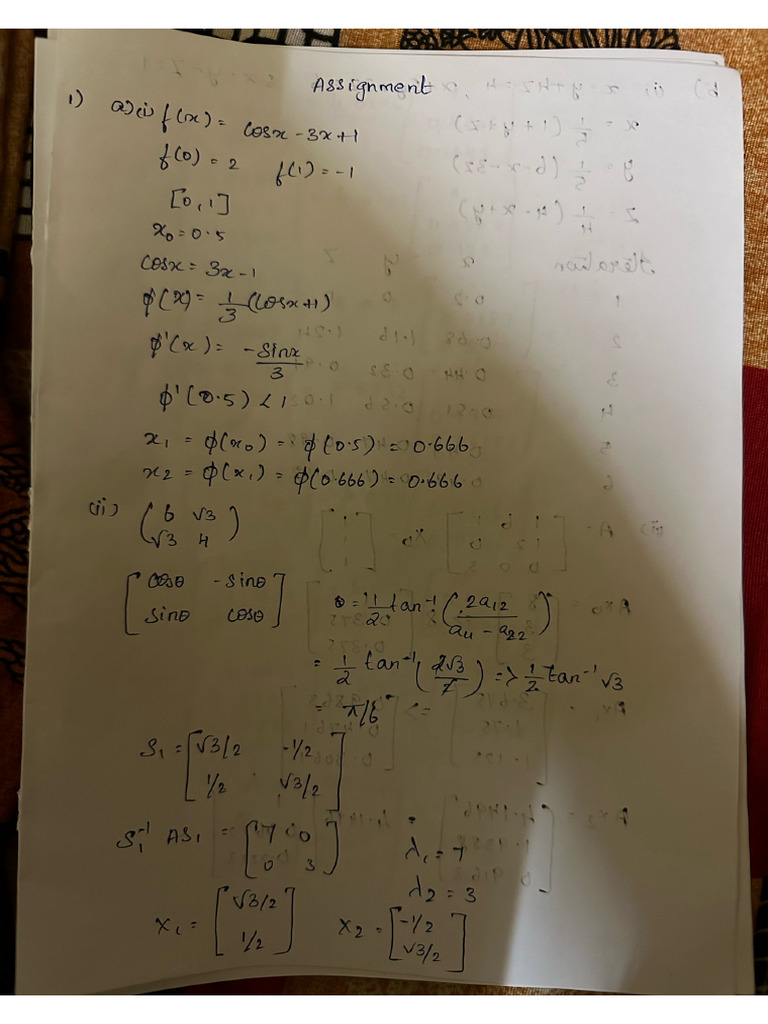 Assignment
1) a) (i) f(x) = cosx - 3x + 1
f(0) = 2 f(1) = -1
[0, 1]
x₀ = 0.5
cosx = 3x - 1
ϕ(x) = 1/3 (cosx + 1)
ϕ'(x) = -sinx/3
ϕ'(0.5) < 1
x₁ = ϕ(x₀) = ϕ(0.5) = 0.666
x₂ = ϕ(x₁) = ϕ(0.666) = 0.666
(ii) ( 6 √3
√3 4 )
[ cosθ -sinθ
sinθ cosθ ]
θ = 1/2 tan⁻¹ ( 2a₁₂ / a₁₁ - a₂₂ )
= 1/2 tan⁻¹ ( 2√3 / 2 ) => 1/2 tan⁻¹ √3
= π/6
S₁ = [ √3/2 -1/2
1/2 √3/2 ]
S₁⁻¹ AS₁ = [ 7 0
0 3 ]
λ₁ = 7
λ₂ = 3
X₁ = [ √3/2
1/2 ]
X₂ = [ -1/2
√3/2 ]